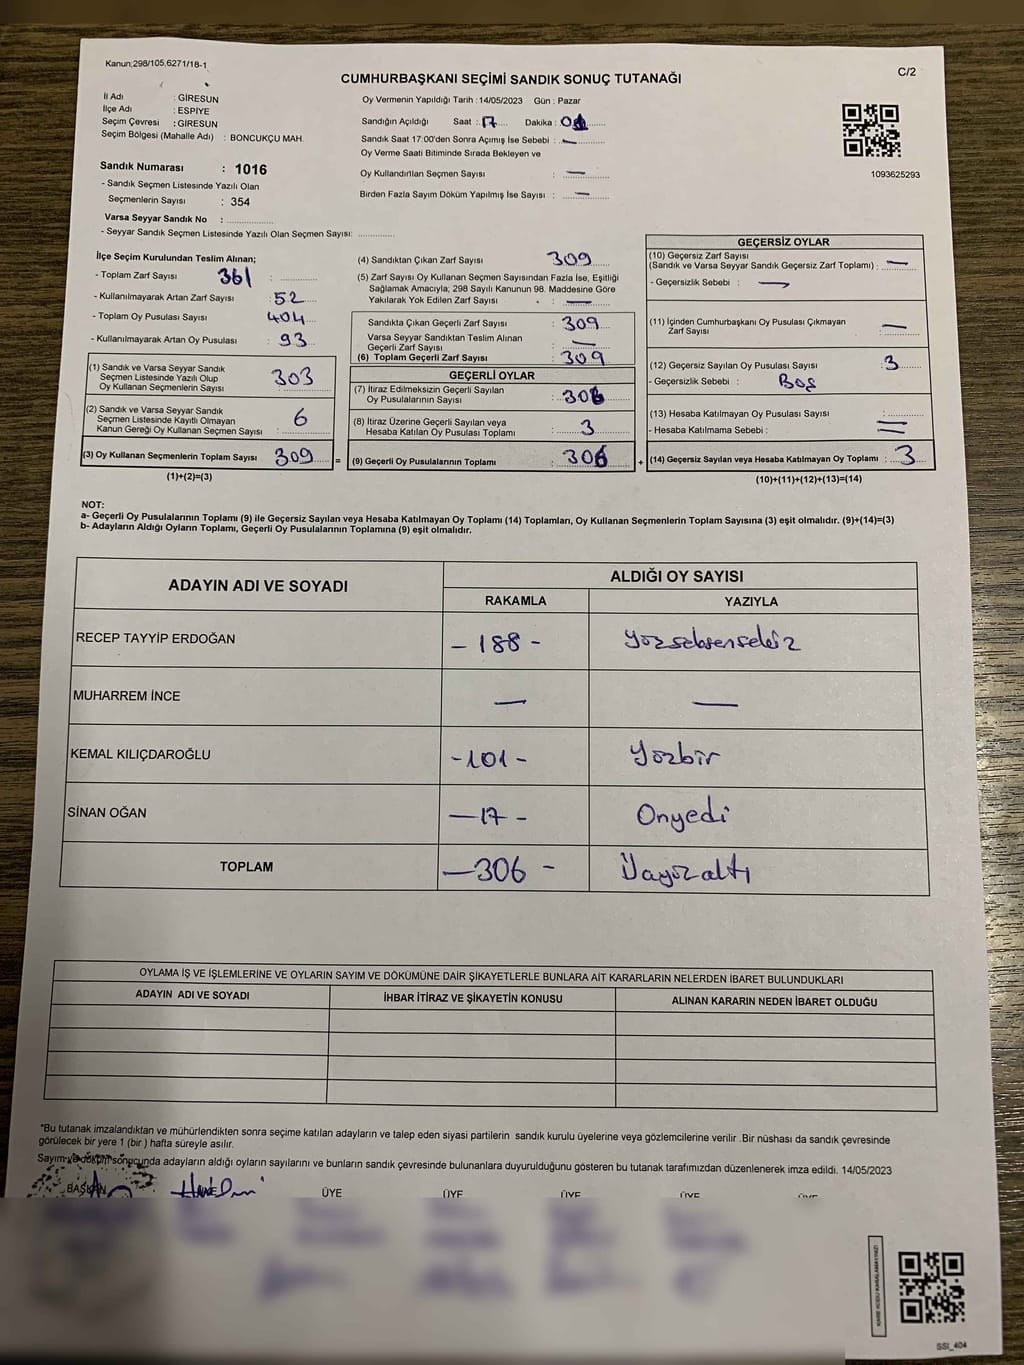 Kanun;298/105,6271/18-1
C/2
CUMHURBAŞKANI SEÇİMİ SANDIK SONUÇ TUTANAĞI
İl Adı : GİRESUN
İlçe Adı : ESPİYE
Seçim Çevresi : GİRESUN
Seçim Bölgesi (Mahalle Adı) : BONCUKÇU MAH.
Oy Vermenin Yapıldığı Tarih : 14/05/2023 Gün : Pazar
Sandığın Açıldığı Saat : 17 Dakika :
Sandık Saat 17:00'den Sonra Açımış İse Sebebi : —
Oy Verme Saati Bitiminde Sırada Bekleyen ve
Oy Kullandırılan Seçmen Sayısı : —
Birden Fazla Sayım Döküm Yapılmış İse Sayısı : —
1093625293
Sandık Numarası : 1016
- Sandık Seçmen Listesinde Yazılı Olan
Seçmenlerin Sayısı : 354
Varsa Seyyar Sandık No :
- Seyyar Sandık Seçmen Listesinde Yazılı Olan Seçmen Sayısı:
İlçe Seçim Kurulundan Teslim Alınan;
- Toplam Zarf Sayısı : 361
- Kullanılmayarak Artan Zarf Sayısı : 52
- Toplam Oy Pusulası Sayısı : 404
- Kullanılmayarak Artan Oy Pusulası : 93
(1) Sandık ve Varsa Seyyar Sandık
Seçmen Listesinde Yazılı Olup
Oy Kullanan Seçmenlerin Sayısı : 303
(2) Sandık ve Varsa Seyyar Sandık
Seçmen Listesinde Kayıtlı Olmayan
Kanun Gereği Oy Kullanan Seçmen Sayısı : 6
(3) Oy Kullanan Seçmenlerin Toplam Sayısı : 309 =
(1)+(2)=(3)
(4) Sandıktan Çıkan Zarf Sayısı : 309
(5) Zarf Sayısı Oy Kullanan Seçmen Sayısından Fazla İse, Eşitliği
Sağlamak Amacıyla; 298 Sayılı Kanunun 98. Maddesine Göre
Yakılarak Yok Edilen Zarf Sayısı : —
Sandıkta Çıkan Geçerli Zarf Sayısı : 309
Varsa Seyyar Sandıktan Teslim Alınan
Geçerli Zarf Sayısı : —
(6) Toplam Geçerli Zarf Sayısı : 309
GEÇERLİ OYLAR
(7) İtiraz Edilmeksizin Geçerli Sayılan
Oy Pusulalarının Sayısı : 306
(8) İtiraz Üzerine Geçerli Sayılan veya
Hesaba Katılan Oy Pusulası Toplamı : 3
(9) Geçerli Oy Pusulalarının Toplamı : 306 +
GEÇERSİZ OYLAR
(10) Geçersiz Zarf Sayısı
(Sandık ve Varsa Seyyar Sandık Geçersiz Zarf Toplamı) : —
- Geçersizlik Sebebi : —
(11) İçinden Cumhurbaşkanı Oy Pusulası Çıkmayan
Zarf Sayısı : —
(12) Geçersiz Sayılan Oy Pusulası Sayısı : 3
- Geçersizlik Sebebi : Boş
(13) Hesaba Katılmayan Oy Pusulası Sayısı : —
- Hesaba Katılmama Sebebi : —
(14) Geçersiz Sayılan veya Hesaba Katılmayan Oy Toplamı : 3
(10)+(11)+(12)+(13)=(14)
NOT:
a- Geçerli Oy Pusulalarının Toplamı (9) ile Geçersiz Sayılan veya Hesaba Katılmayan Oy Toplamı (14) Toplamları, Oy Kullanan Seçmenlerin Toplam Sayısına (3) eşit olmalıdır. (9)+(14)=(3)
b- Adayların Aldığı Oyların Toplamı, Geçerli Oy Pusulalarının Toplamına (9) eşit olmalıdır.
ADAYIN ADI VE SOYADI ALDIĞI OY SAYISI
RAKAMLA YAZIYLA
RECEP TAYYİP ERDOĞAN - 188 - yözseksensekiz
MUHARREM İNCE — —
KEMAL KILIÇDAROĞLU - 101 - Yözbir
SİNAN OĞAN - 17 - Onyedi
TOPLAM - 306 - Üçyözaltı
OYLAMA İŞ VE İŞLEMLERİNE VE OYLARIN SAYIM VE DÖKÜMÜNE DAİR ŞİKAYETLERLE BUNLARA AİT KARARLARIN NELERDEN İBARET BULUNDUKLARI
ADAYIN ADI VE SOYADI İHBAR İTİRAZ VE ŞİKAYETİN KONUSU ALINAN KARARIN NEDEN İBARET OLDUĞU
*Bu tutanak imzalandıktan ve mühürlendikten sonra seçime katılan adayların ve talep eden siyasi partilerin sandık kurulu üyelerine veya gözlemcilerine verilir .Bir nüshası da sandık çevresinde
görülecek bir yere 1 (bir ) hafta süreyle asılır.
Sayım ve döküm sonucunda adayların aldığı oyların sayılarını ve bunların sandık çevresinde bulunanlara duyurulduğunu gösteren bu tutanak tarafımızdan düzenlenerek imza edildi. 14/05/2023
BAŞKAN ÜYE ÜYE ÜYE ÜYE
KARE KODU KARALAMAYINIZ!
SSI_404